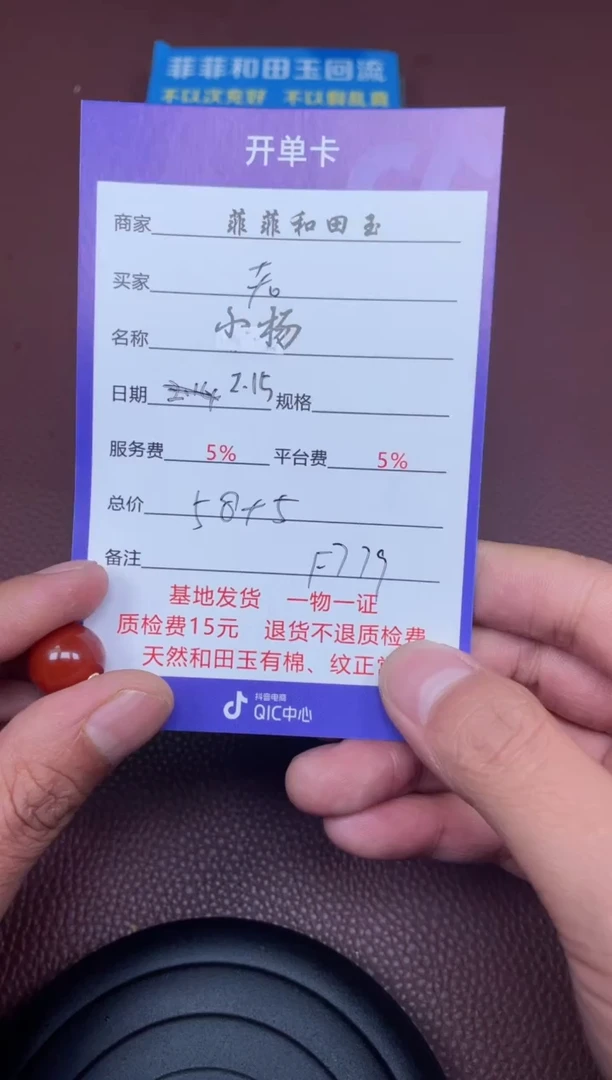 菲菲和田玉回流
开单卡
商家 菲菲和田玉
买家
名称 小杨
日期 2.15 规格
服务费 5% 平台费 5%
总价 58+5
备注 F779
基地发货 一物一证
质检费15元 退货不退质检费
天然和田玉有棉、纹正
抖音电商
QIC中心